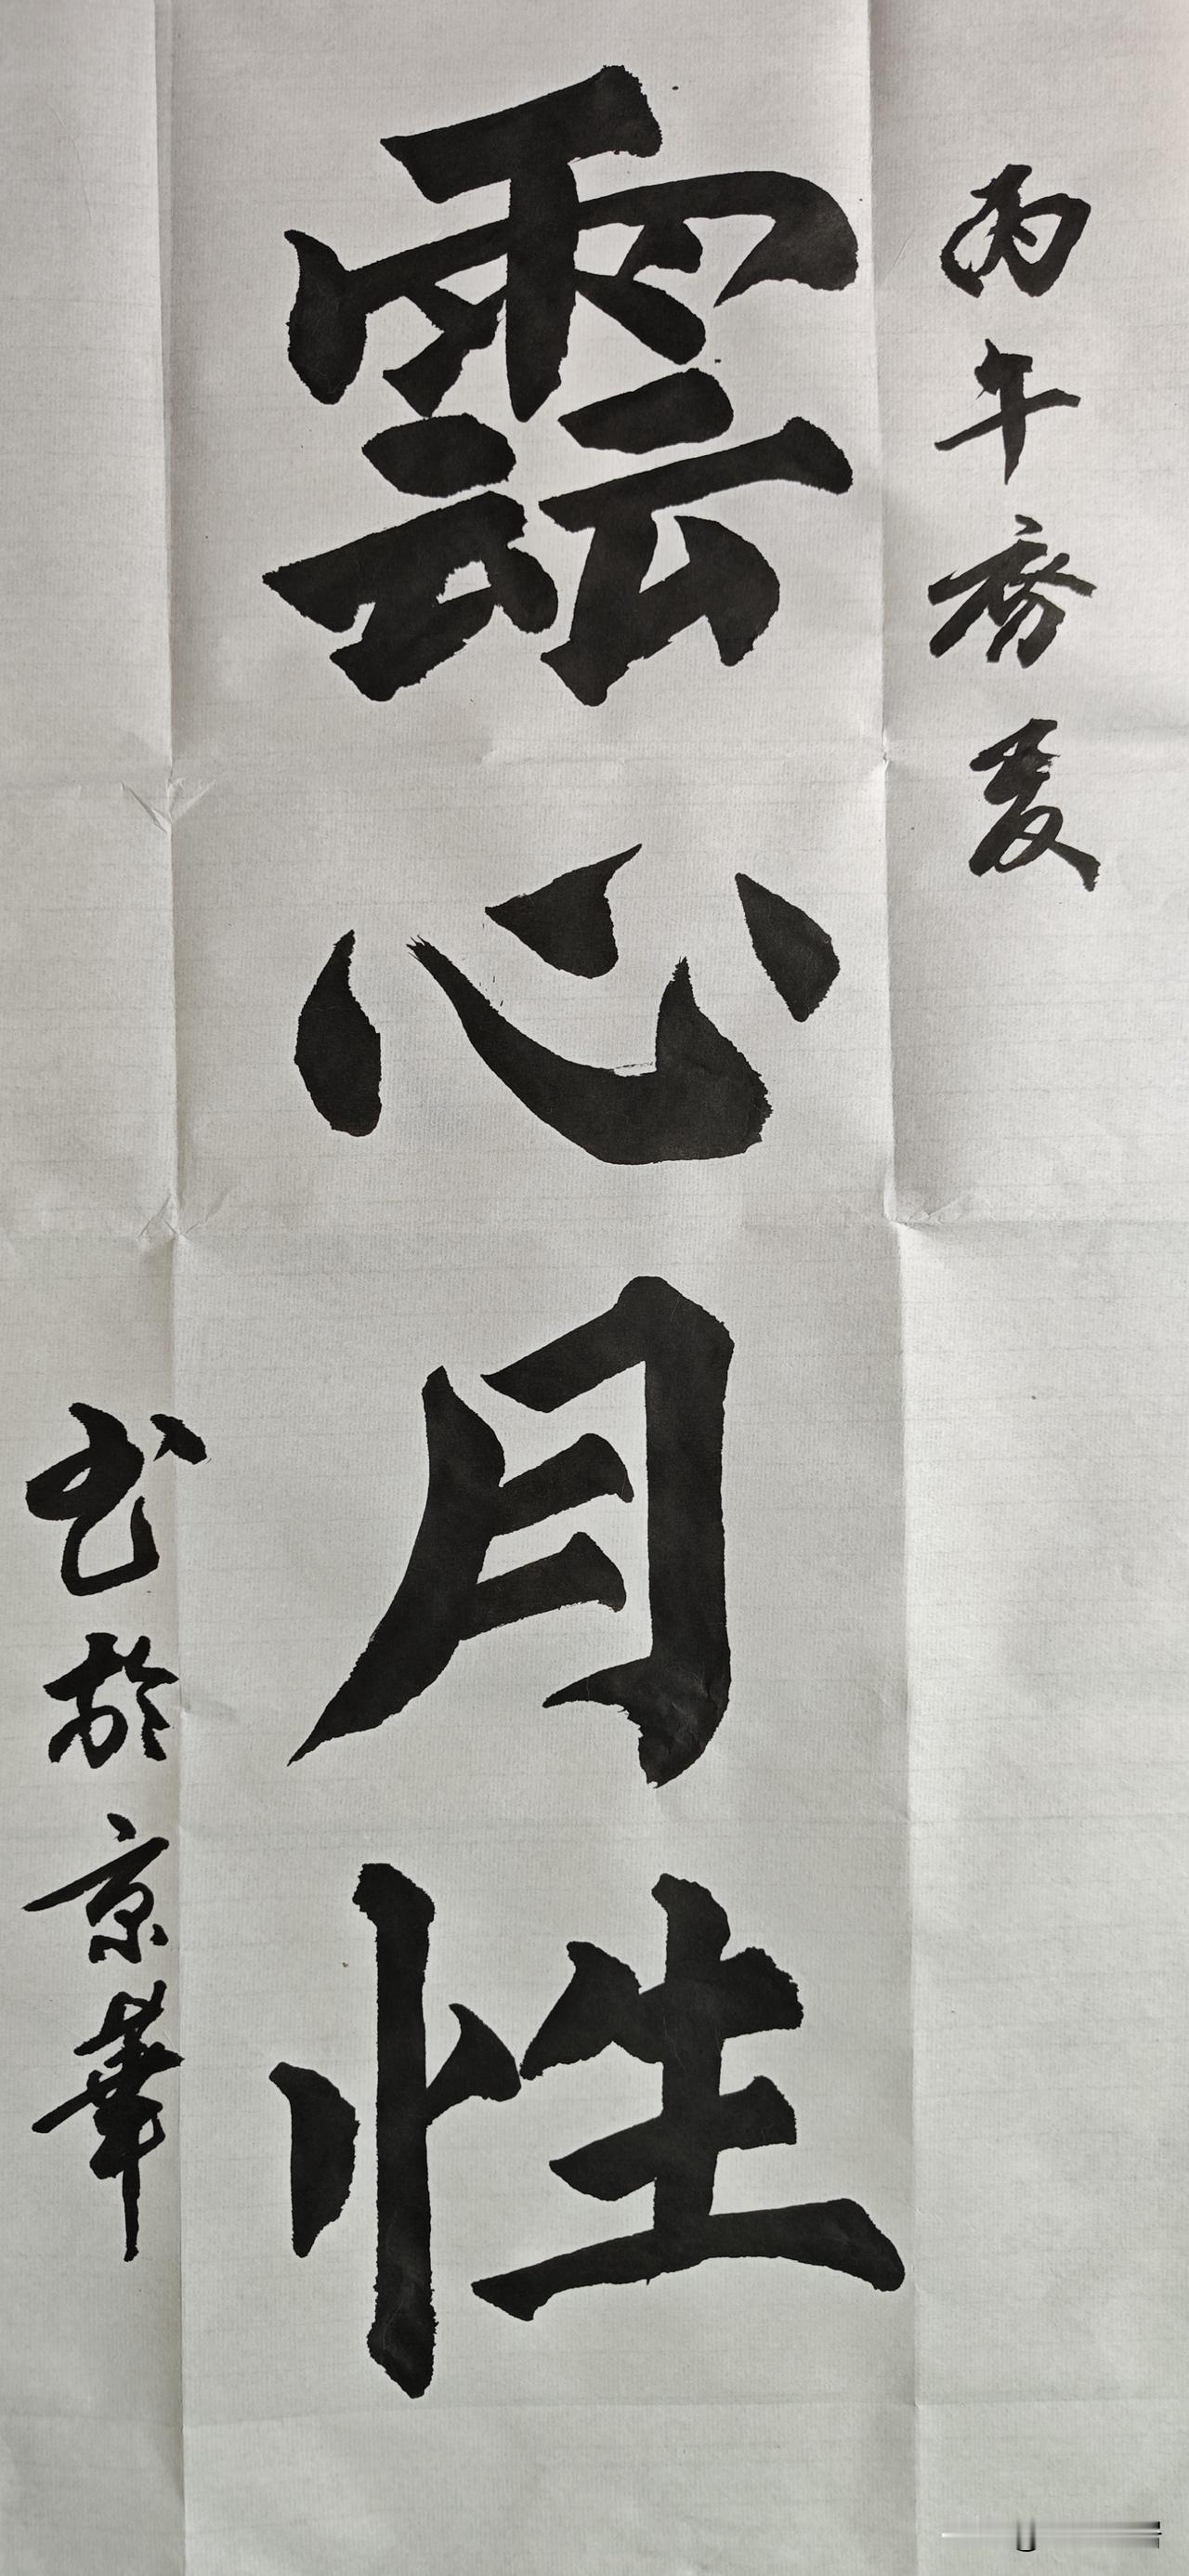 丙午夏
雲心月性
书於京華